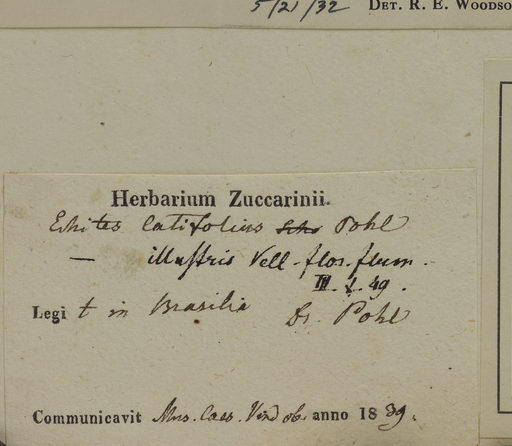 5/21/32 DET. R. E. WOODSO
Herbarium Zuccarinii.
Echites latifolius Pohl
— illustris Vell. flor. flum.
III. t. 49.
Legit in Brasilia Dr. Pohl
Communicavit Mus. Caes. Vindob. anno 1839.